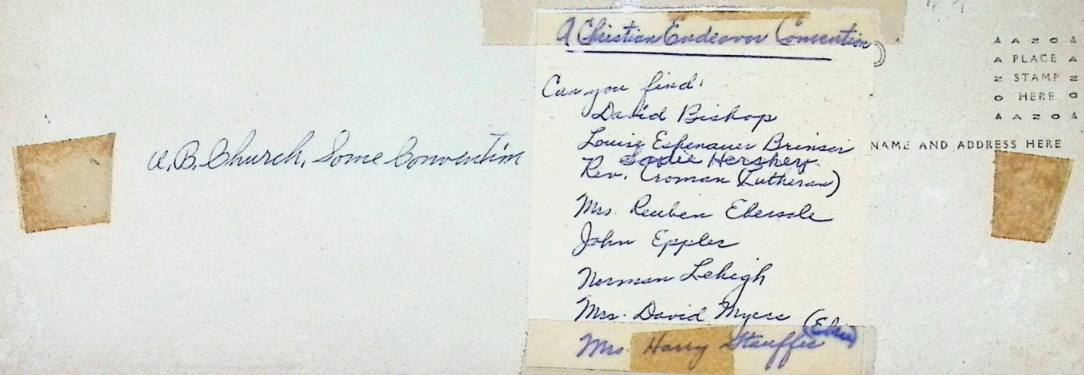 U.B. Church, Some Convention
A Christian Endeavor Convention
Can you find:
David Bishop
Louise Espenauer Brinser
Sadie Hershey
Rev. Croman (Lutheran)
Mrs. Reuben Ebersole
John Eppler
Norman Lehigh
Mrs. David Myers (Elsie)
Mrs. Harry Stauffer
PLACE
STAMP
HERE
NAME AND ADDRESS HERE